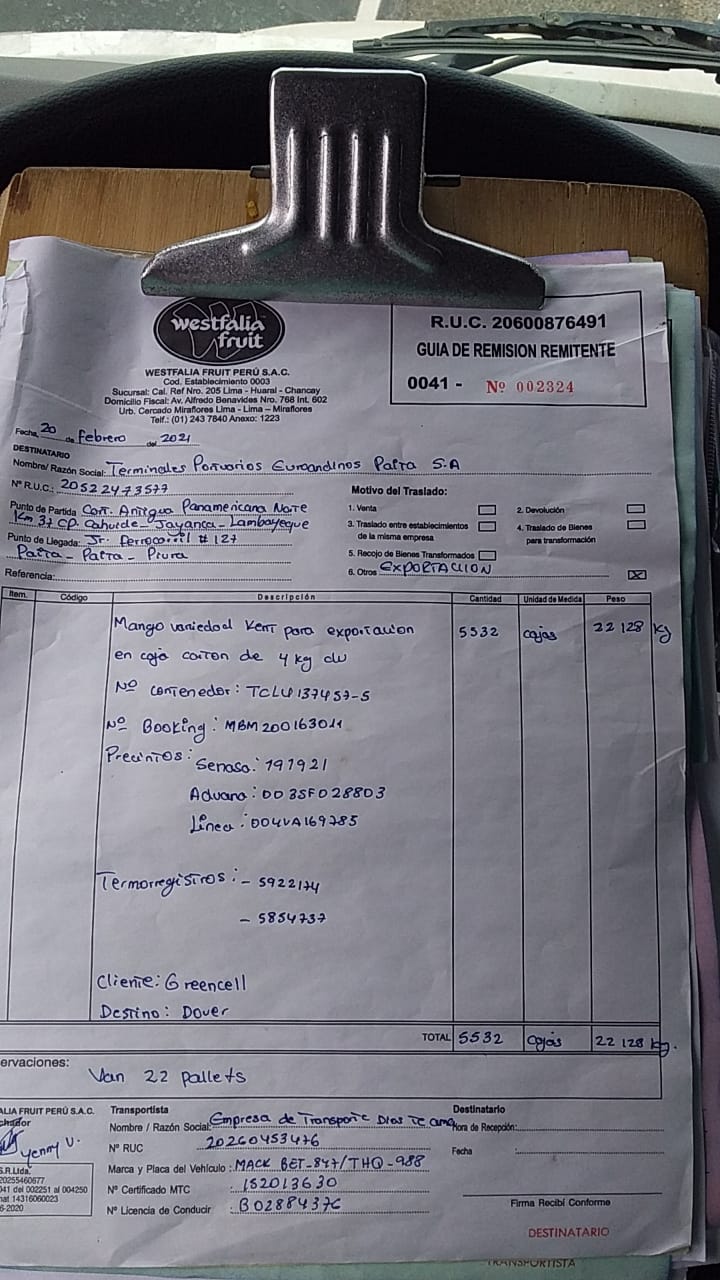 westfalia
fruit
WESTFALIA FRUIT PERÚ S.A.C.
Cod. Establecimiento 0003
Sucursal: Cal. Ref Nro. 205 Lima - Huaral - Chancay
Domicilio Fiscal: Av. Alfredo Benavides Nro. 768 Int. 602
Urb. Cercado Miraflores Lima - Lima – Miraflores
Telf.: (01) 243 7840 Anexo: 1223
R.U.C. 20600876491
GUIA DE REMISION REMITENTE
0041 - Nº 002324
Fecha, 20 de Febrero del 2021
DESTINATARIO
Nombre/ Razón Social: Terminales Portuarios Euroandinos Paita S.A
Nº R.U.C.: 20522473577
Punto de Partida Carr. Antigua Panamericana Norte
Km 37 CP. Cahuide - Jayanca - Lambayeque
Punto de Llegada: Jr. Ferrocarril # 127
Paita - Paita - Piura
Referencia:
Motivo del Traslado:
1. Venta
2. Devolución
3. Traslado entre establecimientos
de la misma empresa
4. Traslado de Bienes
para transformación
5. Recojo de Bienes Transformados
6. Otros EXPORTACION X
Item. Código Descripción Cantidad Unidad de Medida Peso
Mango variedad Kent para exportacion 5532 cajas 22 128 kg
en caja carton de 4 kg c/u
Nº contenedor: TCLU 137457-5
Nº Booking: MBM200163011
Precintos:
Senasa: 191921
Aduana: 003SF028803
Linea: 004VA169785
Termorregistros: - 5922174
- 5854737
Cliente: Greencell
Destino: Dover
TOTAL 5532 cajas 22 128 kg.
ervaciones:
Van 22 pallets
ALIA FRUIT PERÚ S.A.C.
chador
Yenny V.
S.R.Ltda.
20255460677
041 del 002251 al 004250
nat 14316060023
6-2020
Transportista
Nombre / Razón Social: Empresa de Transporte Dios Te ama
Nº RUC 20260453476
Marca y Placa del Vehículo : MACK BET-847/THQ-988
Nº Certificado MTC : 152013630
Nº Licencia de Conducir : B02884376
Destinatario
Hora de Recepción:
Fecha :
Firma Recibí Conforme
DESTINATARIO
TRANSPORTISTA